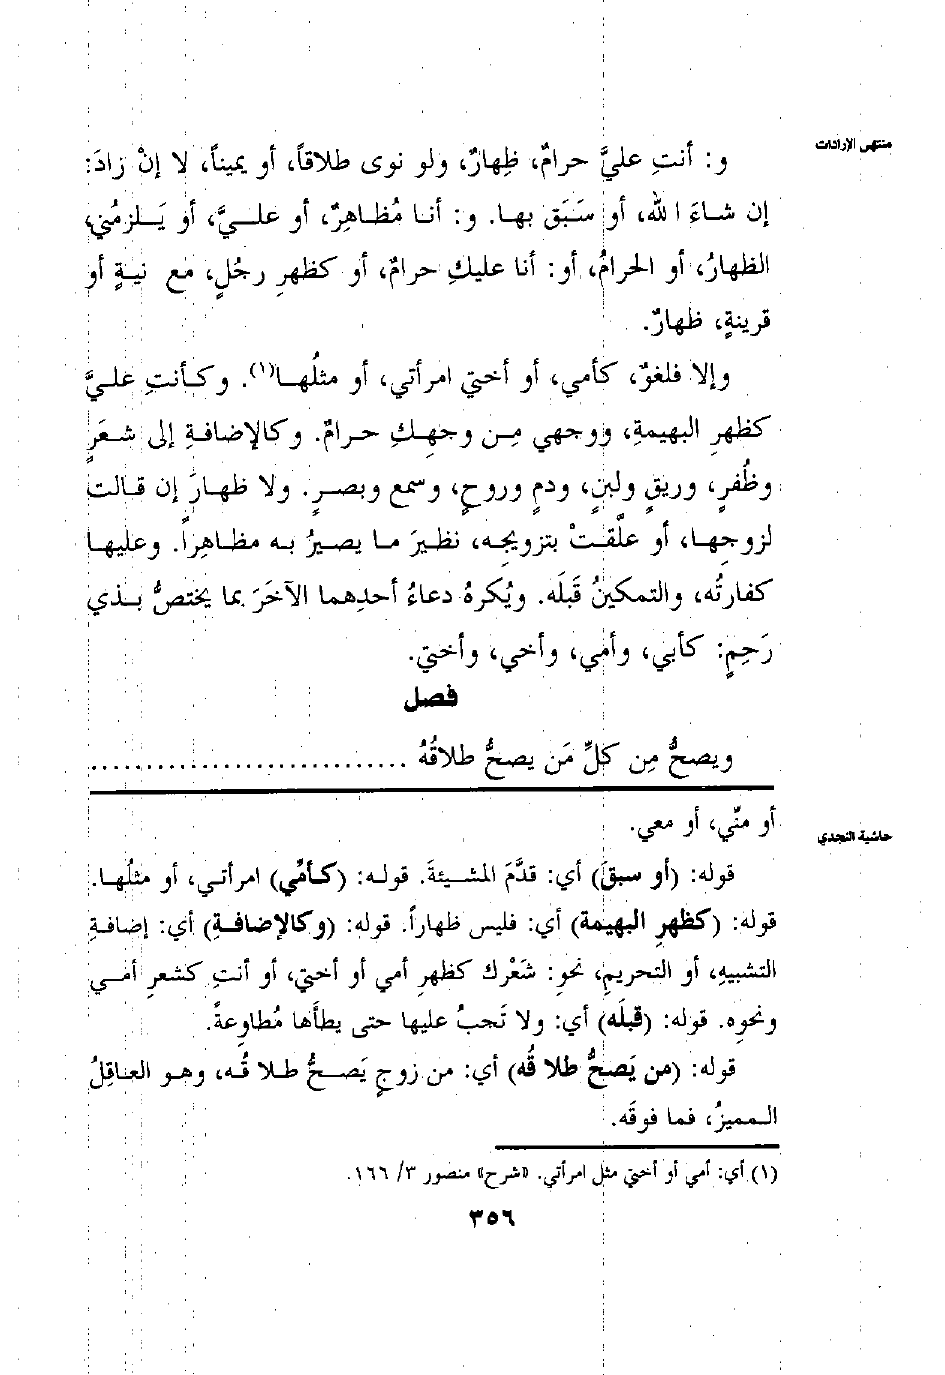 منتهى الإرادات
و: أنتِ عليَّ حرامٌ، ظِهارٌ، ولو نوى طلاقاً، أو يميناً، لا إنْ زادَ:
إن شاءَ الله، أو سَبَق بها. و: أنا مُظاهِرٌ، أو عليَّ، أو يَلزمُني
الظهارُ، أو الحرامُ، أو: أنا عليكِ حرامٌ، أو كظهرِ رجُلٍ، مع نيةٍ أو
قرينةٍ، ظهارٌ.
وإلا فلغوٌ، كأمي، أو أختي امرأتي، أو مثلُها(١). وكأنتِ عليَّ
كظهرِ البهيمةِ، ووجهي مِن وجهِكِ حرامٌ. وكالإضافةِ إلى شعَرٍ
وظُفرٍ، وريقٍ ولبنٍ، ودمٍ وروحٍ، وسمعٍ وبصرٍ. ولا ظهارَ إن قالت
لزوجِها، أو علَّقتْ بتزويجِه، نظيرَ ما يصيرُ به مظاهِراً. وعليها
كفارتُه، والتمكينُ قَبلَه. ويُكرهُ دعاءُ أحدِهما الآخرَ بما يختصُّ بذي
رَحِمٍ: كأبي، وأمي، وأخي، وأختي.
فصل
ويصحُّ مِن كلِّ مَن يصحُّ طلاقُهُ ..............................
حاشية النجدي
أو منّي، أو معي.
قوله: (أو سبقَ) أي: قدَّمَ المشيئةَ. قوله: (كأمِّي) امرأتي، أو مثلُها.
قوله: (كظهرِ البهيمة) أي: فليس ظهاراً. قوله: (وكالإضافةِ) أي: إضافةِ
التشبيهِ، أو التحريمِ، نحوِ: شعْرك كظهرِ أمي أو أختي، أو أنتِ كشعرِ أمي
ونحوِه. قوله: (قبلَه) أي: ولا تَجبُ عليها حتى يطأَها مُطاوِعةً.
قوله: (من يَصحُّ طلاقُه) أي: من زوجٍ يَصحُّ طلاقُه، وهو العاقلُ
المميزُ، فما فوقَه.
(١) أي: أمي أو أختي مثل امرأتي. «شرح» منصور ٣/ ١٦٦.
٣٥٦